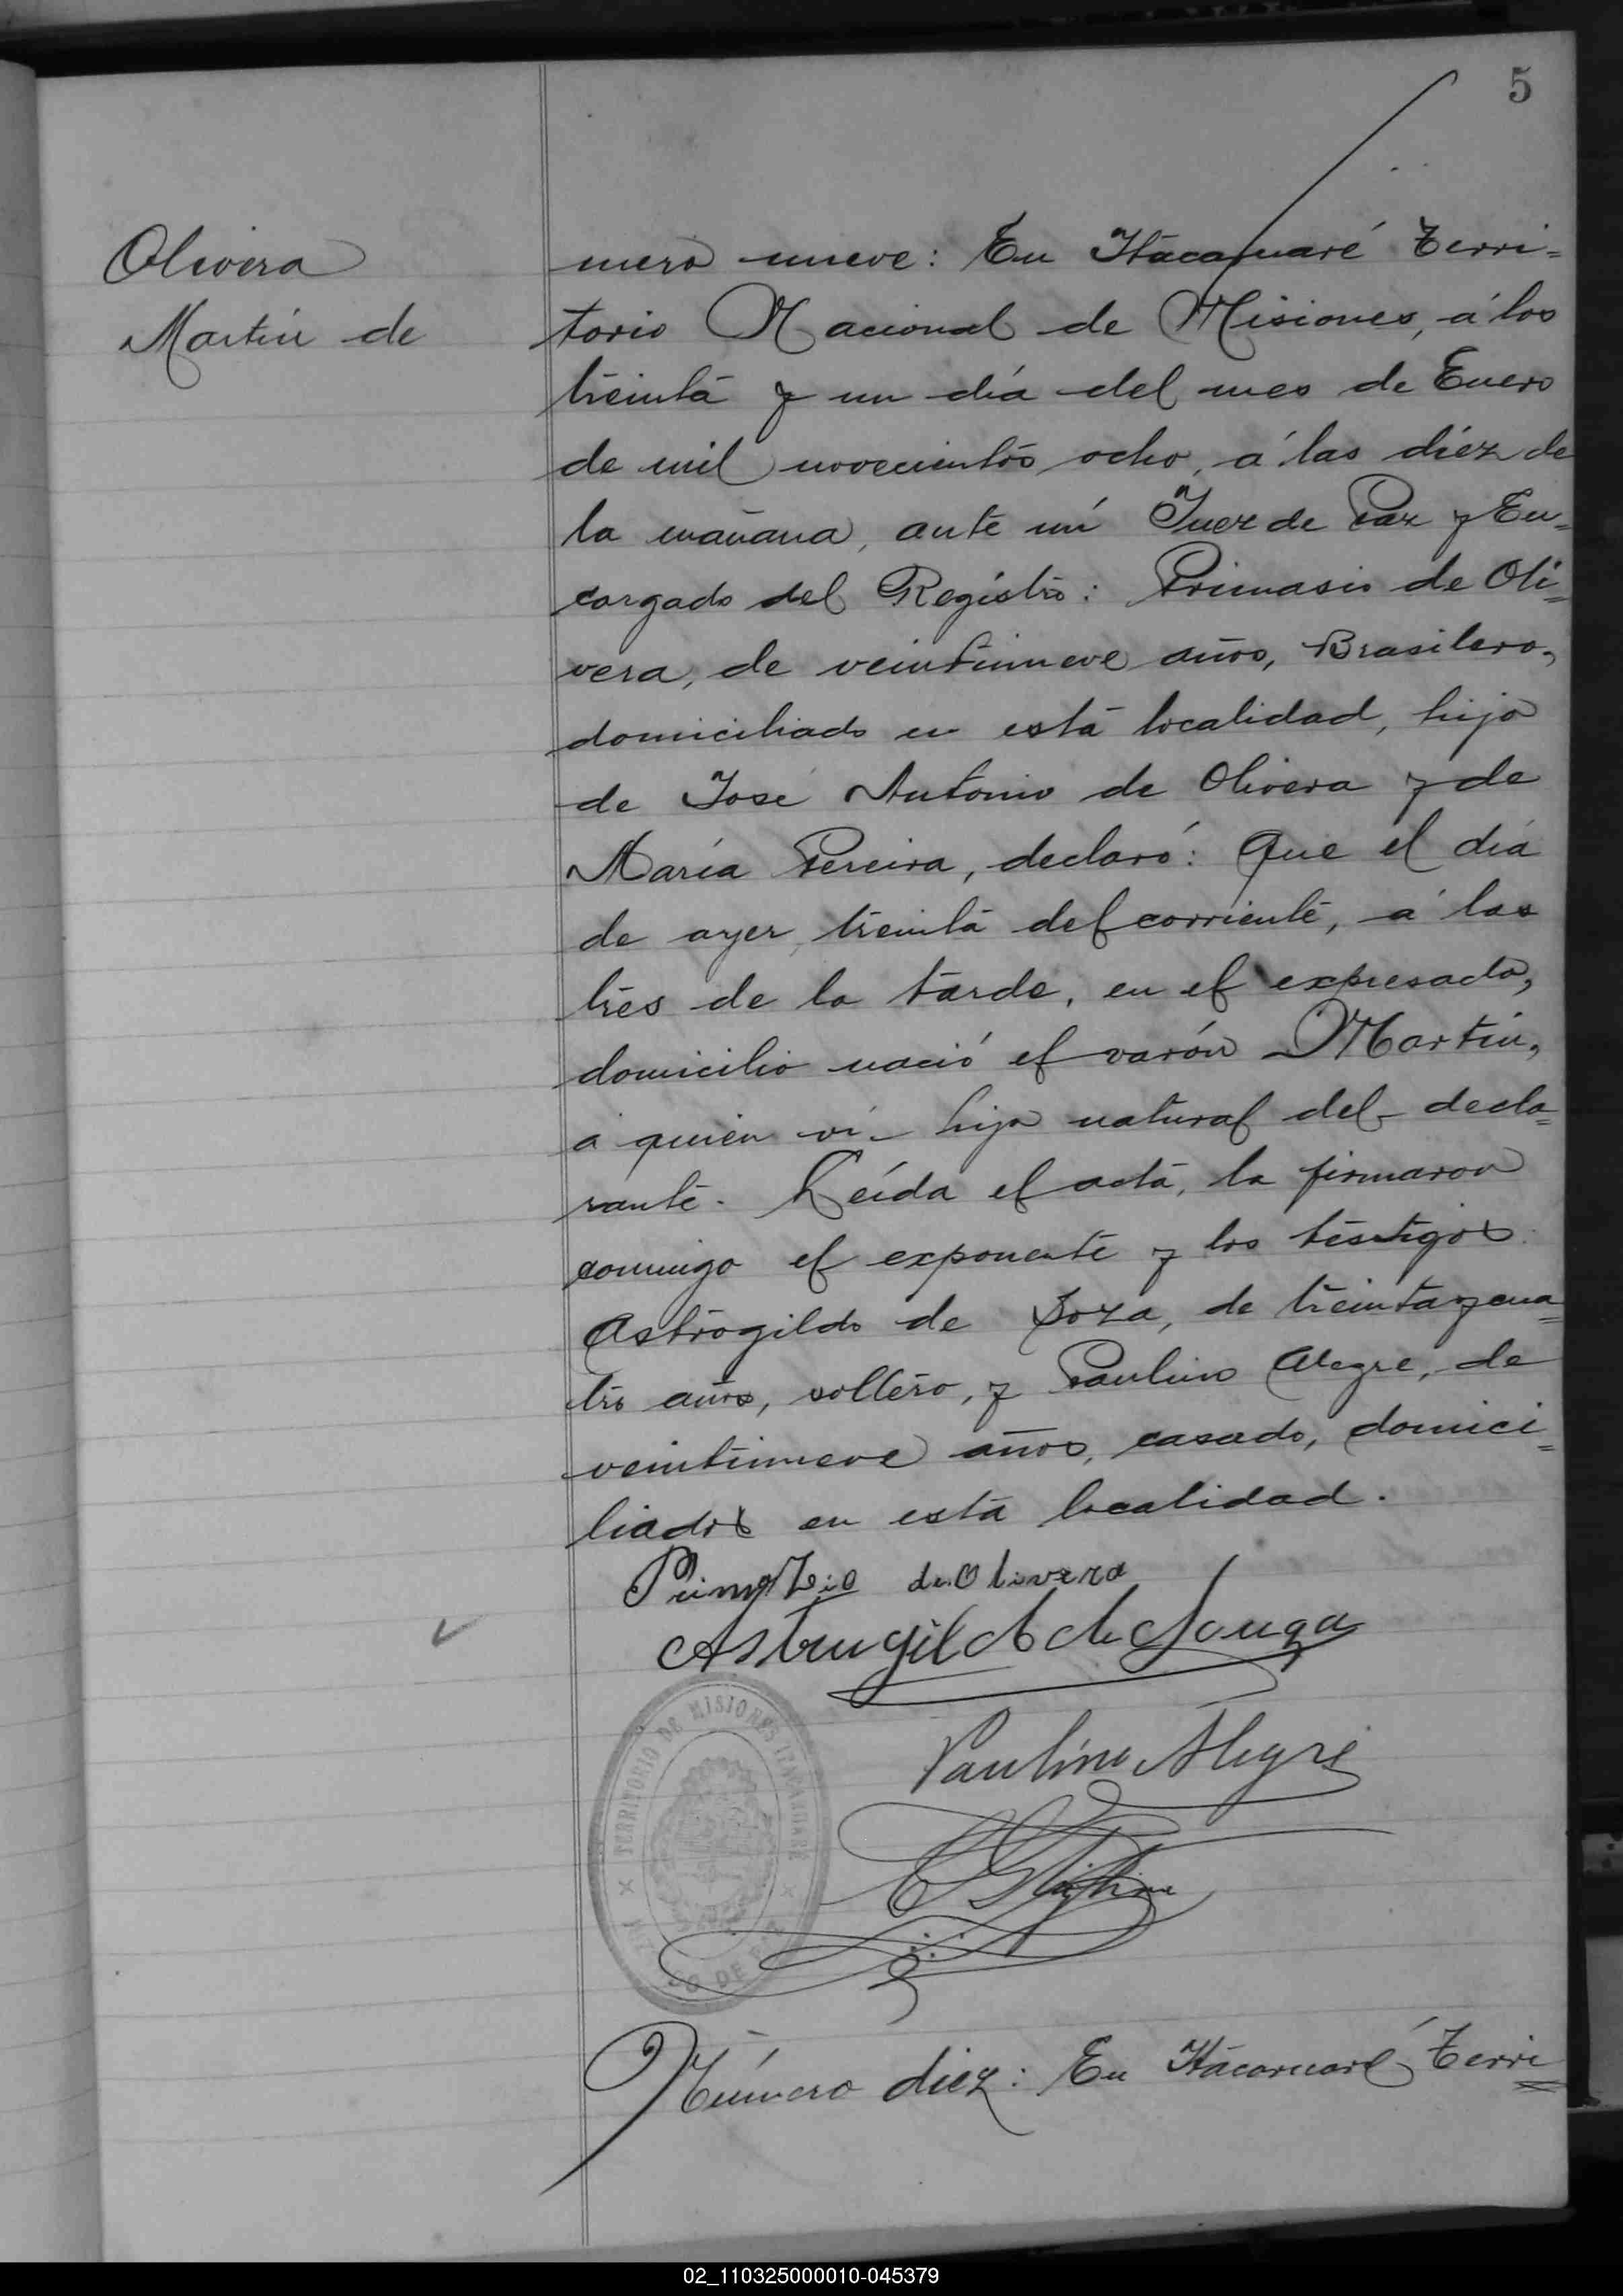 5
Olivera
Martín de
mero nueve: En Itacaruaré Terri=
torio Nacional de Misiones, á los
treinta y un día del mes de Enero
de mil novecientos ocho, á las diéz de
la mañana, ante mí Juez de Paz y En=
cargado del Registro: Primasio de Oli=
vera, de veintinueve años, Brasilero,
domiciliado en esta localidad, hijo
de José Antonio de Olivera y de
María Pereira, declaró: Que el día
de ayer, treinta del corriente, á las
tres de la tarde, en el expresado,
domicilio nació el varón Martín,
á quien ví hijo natural del decla=
rante. Leída el acta, la firmaron
conmigo el exponente y los testigos
Astrogildo de Soza, de treinta y cua=
tro años, soltero, y Paulino Alegre, de
veintinueve años, casado, domici=
liados en esta localidad.
Primazio de Olivera
Astrugildo de Souza
Paulino Alegre
TERRITORIO DE MISIONES ITACARUARÉ
DE
Número diez: En Itacaruaré Terri=
02_110325000010-045379